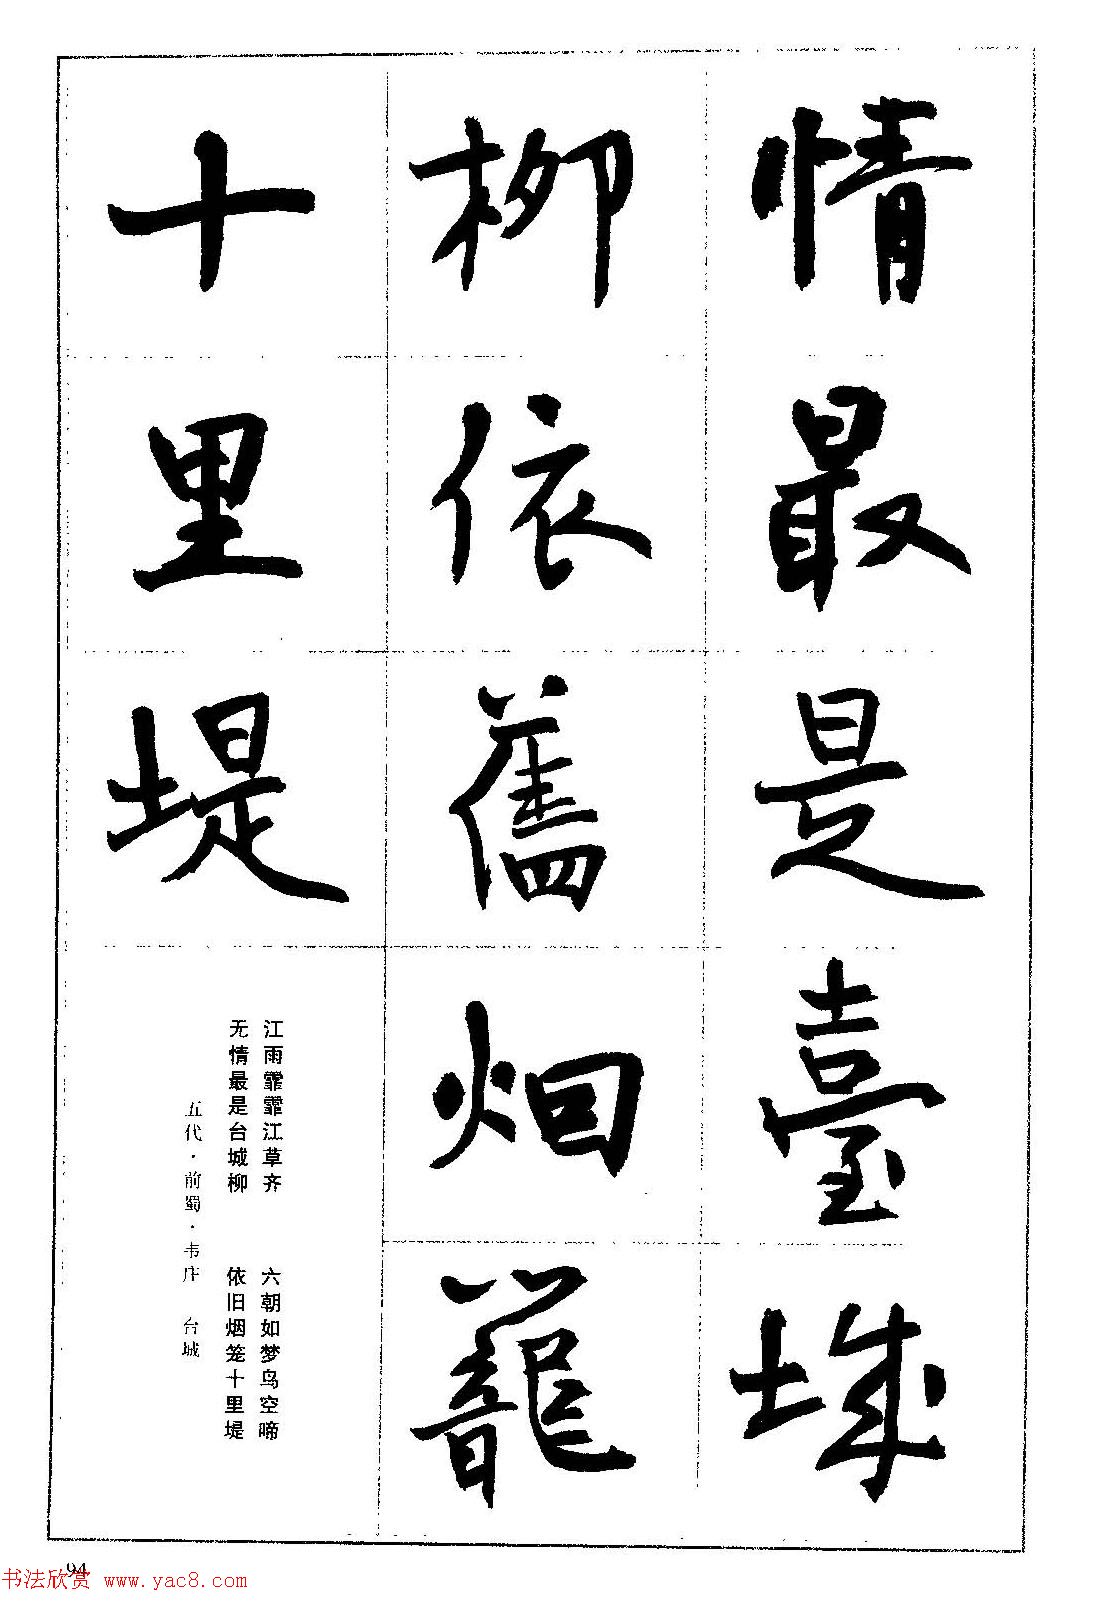 情最是臺城
柳依舊烟籠
十里堤
江雨霏霏江草齐 六朝如梦鸟空啼
无情最是台城柳 依旧烟笼十里堤
五代·前蜀·韦庄 台城
94
书法欣赏 www.yac8.com